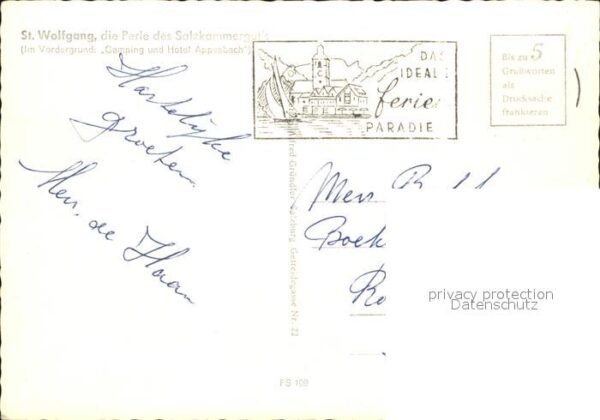 St. Wolfgang, die Perle des Salzkammergut's
(Im Vordergrund: „Camping und Hotel Appesbach")
DAS
IDEALE
ferie
PARADIE
Bis zu 5
Grußworten
als
Drucksache
frankieren
Hartelijke
Groeten
Mev. de Haan
Mev.
Boek
Ro
Salzburg, Getreidegasse Nr. 22
FS 109
privacy protection
Datenschutz